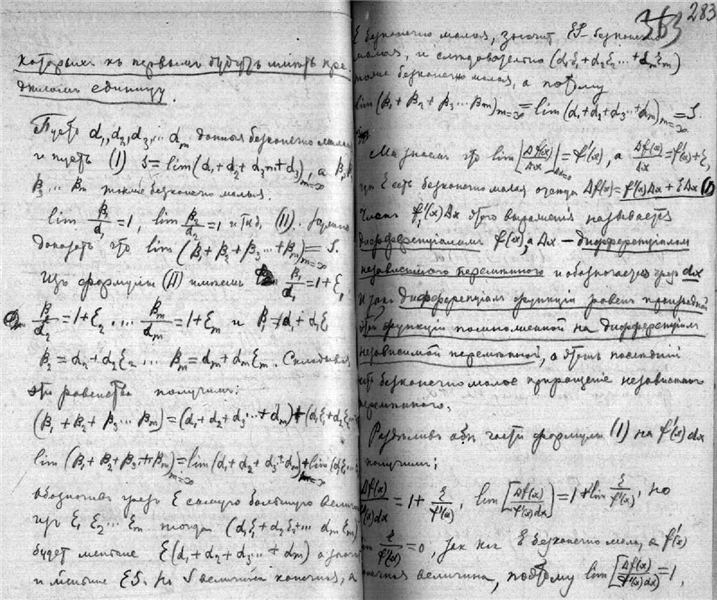 которыхъ къ первымъ будутъ имѣть пре-
дѣломъ единицу.
Пусть α₁, α₂, α₃, … αₘ данныя безконечно малыя
и пусть (I) S = lim(α₁ + α₂ + α₃ … + αₘ)ₘ₌∞, а β₁, β₂
β₃ … βₘ тоже безконечно малыя.
lim β₁/α₁ = 1, lim β₂/α₂ = 1 и т.д. (II).
доказать что lim(β₁ + β₂ + β₃ … + βₘ)ₘ₌∞ = S.
Изъ формулы (II) имѣемъ β₁/α₁ = 1 + ℰ₁
β₂/α₂ = 1 + ℰ₂ … βₘ/αₘ = 1 + ℰₘ и β₁ = α₁ + α₁ℰ₁
β₂ = α₂ + α₂ℰ₂ … βₘ = αₘ + αₘℰₘ. Складывая
эти равенства получимъ:
(β₁ + β₂ + β₃ … βₘ) = (α₁ + α₂ + α₃ … + αₘ) + (α₁ℰ₁ + α₂ℰ₂
lim(β₁ + β₂ + β₃ … + βₘ)ₘ₌∞ = lim(α₁ + α₂ + α₃ + αₘ)ₘ₌∞ + lim(α₁ℰ₁
обозначивъ чрезъ ℰ самую большую величину
изъ ℰ₁ ℰ₂ … ℰₘ тогда (α₁ℰ₁ + α₂ℰ₂ + … αₘℰₘ)
будетъ меньше ℰ(α₁ + α₂ + α₃ … + αₘ) а
и меньше ℰS. но S величина конечная, а
283
ℰ безконечно малая, значитъ ℰS – безконечно
малая, и слѣдовательно (α₁ℰ₁ + α₂ℰ₂ … + αₘℰₘ)
тоже безконечно малая, а потому
lim(β₁ + β₂ + β₃ … βₘ)ₘ₌∞ = lim(α₁ + α₂ + α₃ … + αₘ)ₘ₌∞ = S.
Мы знаемъ что lim[Δf(x)/Δx]Δx₌₀ = f'(x), а Δf(x)/Δx = f'(x) + ℰ,
гдѣ ℰ есть безконечно малая отсюда Δf(x) = f'(x)Δx + ℰΔx (I)
Членъ f'(x)Δx этого выраженія называется
дифференціаломъ f(x), а Δx – дифференціаломъ
независимаго перемѣннаго и обозначается чрезъ dx
И такъ дифференціалъ функціи равенъ производной
этой функціи помноженной на дифференціалъ
независимой перемѣнной, а этотъ послѣдній
есть безконечно малое приращеніе независимаго
перемѣннаго.
Раздѣливъ обѣ части формулы (I) на f'(x)dx
получимъ:
Δf(x)/f'(x)dx = 1 + ℰ/f'(x), lim[Δf(x)/f'(x)dx] = 1 + lim ℰ/f'(x), но
lim ℰ/f'(x) = 0, такъ какъ ℰ безконечно мало, а f'(x)
конечная величина, поэтому lim[Δf(x)/f'(x)dx] = 1,